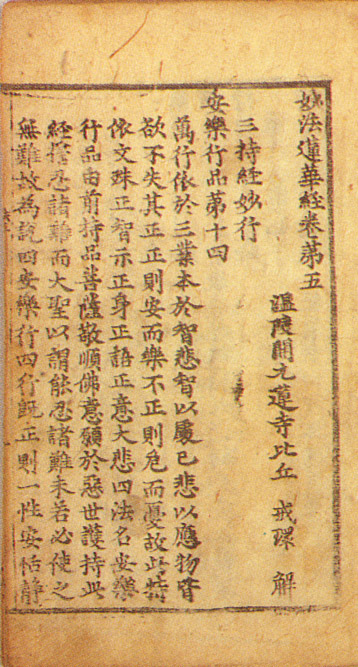 妙法蓮華經卷第五
溫陵開元蓮寺比丘 戒環 解
三持經妙行
安樂行品第十四
萬行依於三業本於智悲智以處己悲以應物皆
欲不失其正正則安而樂不正則危而憂故此特
依文殊正智示正身正語正意大悲四法名安樂
行品由前持品菩薩敬順佛意願於惡世護持此
經擔忍諸難而大聖以謂能忍諸難未若必使之
無難故為說四安樂行四行旣正則一性安恬靜